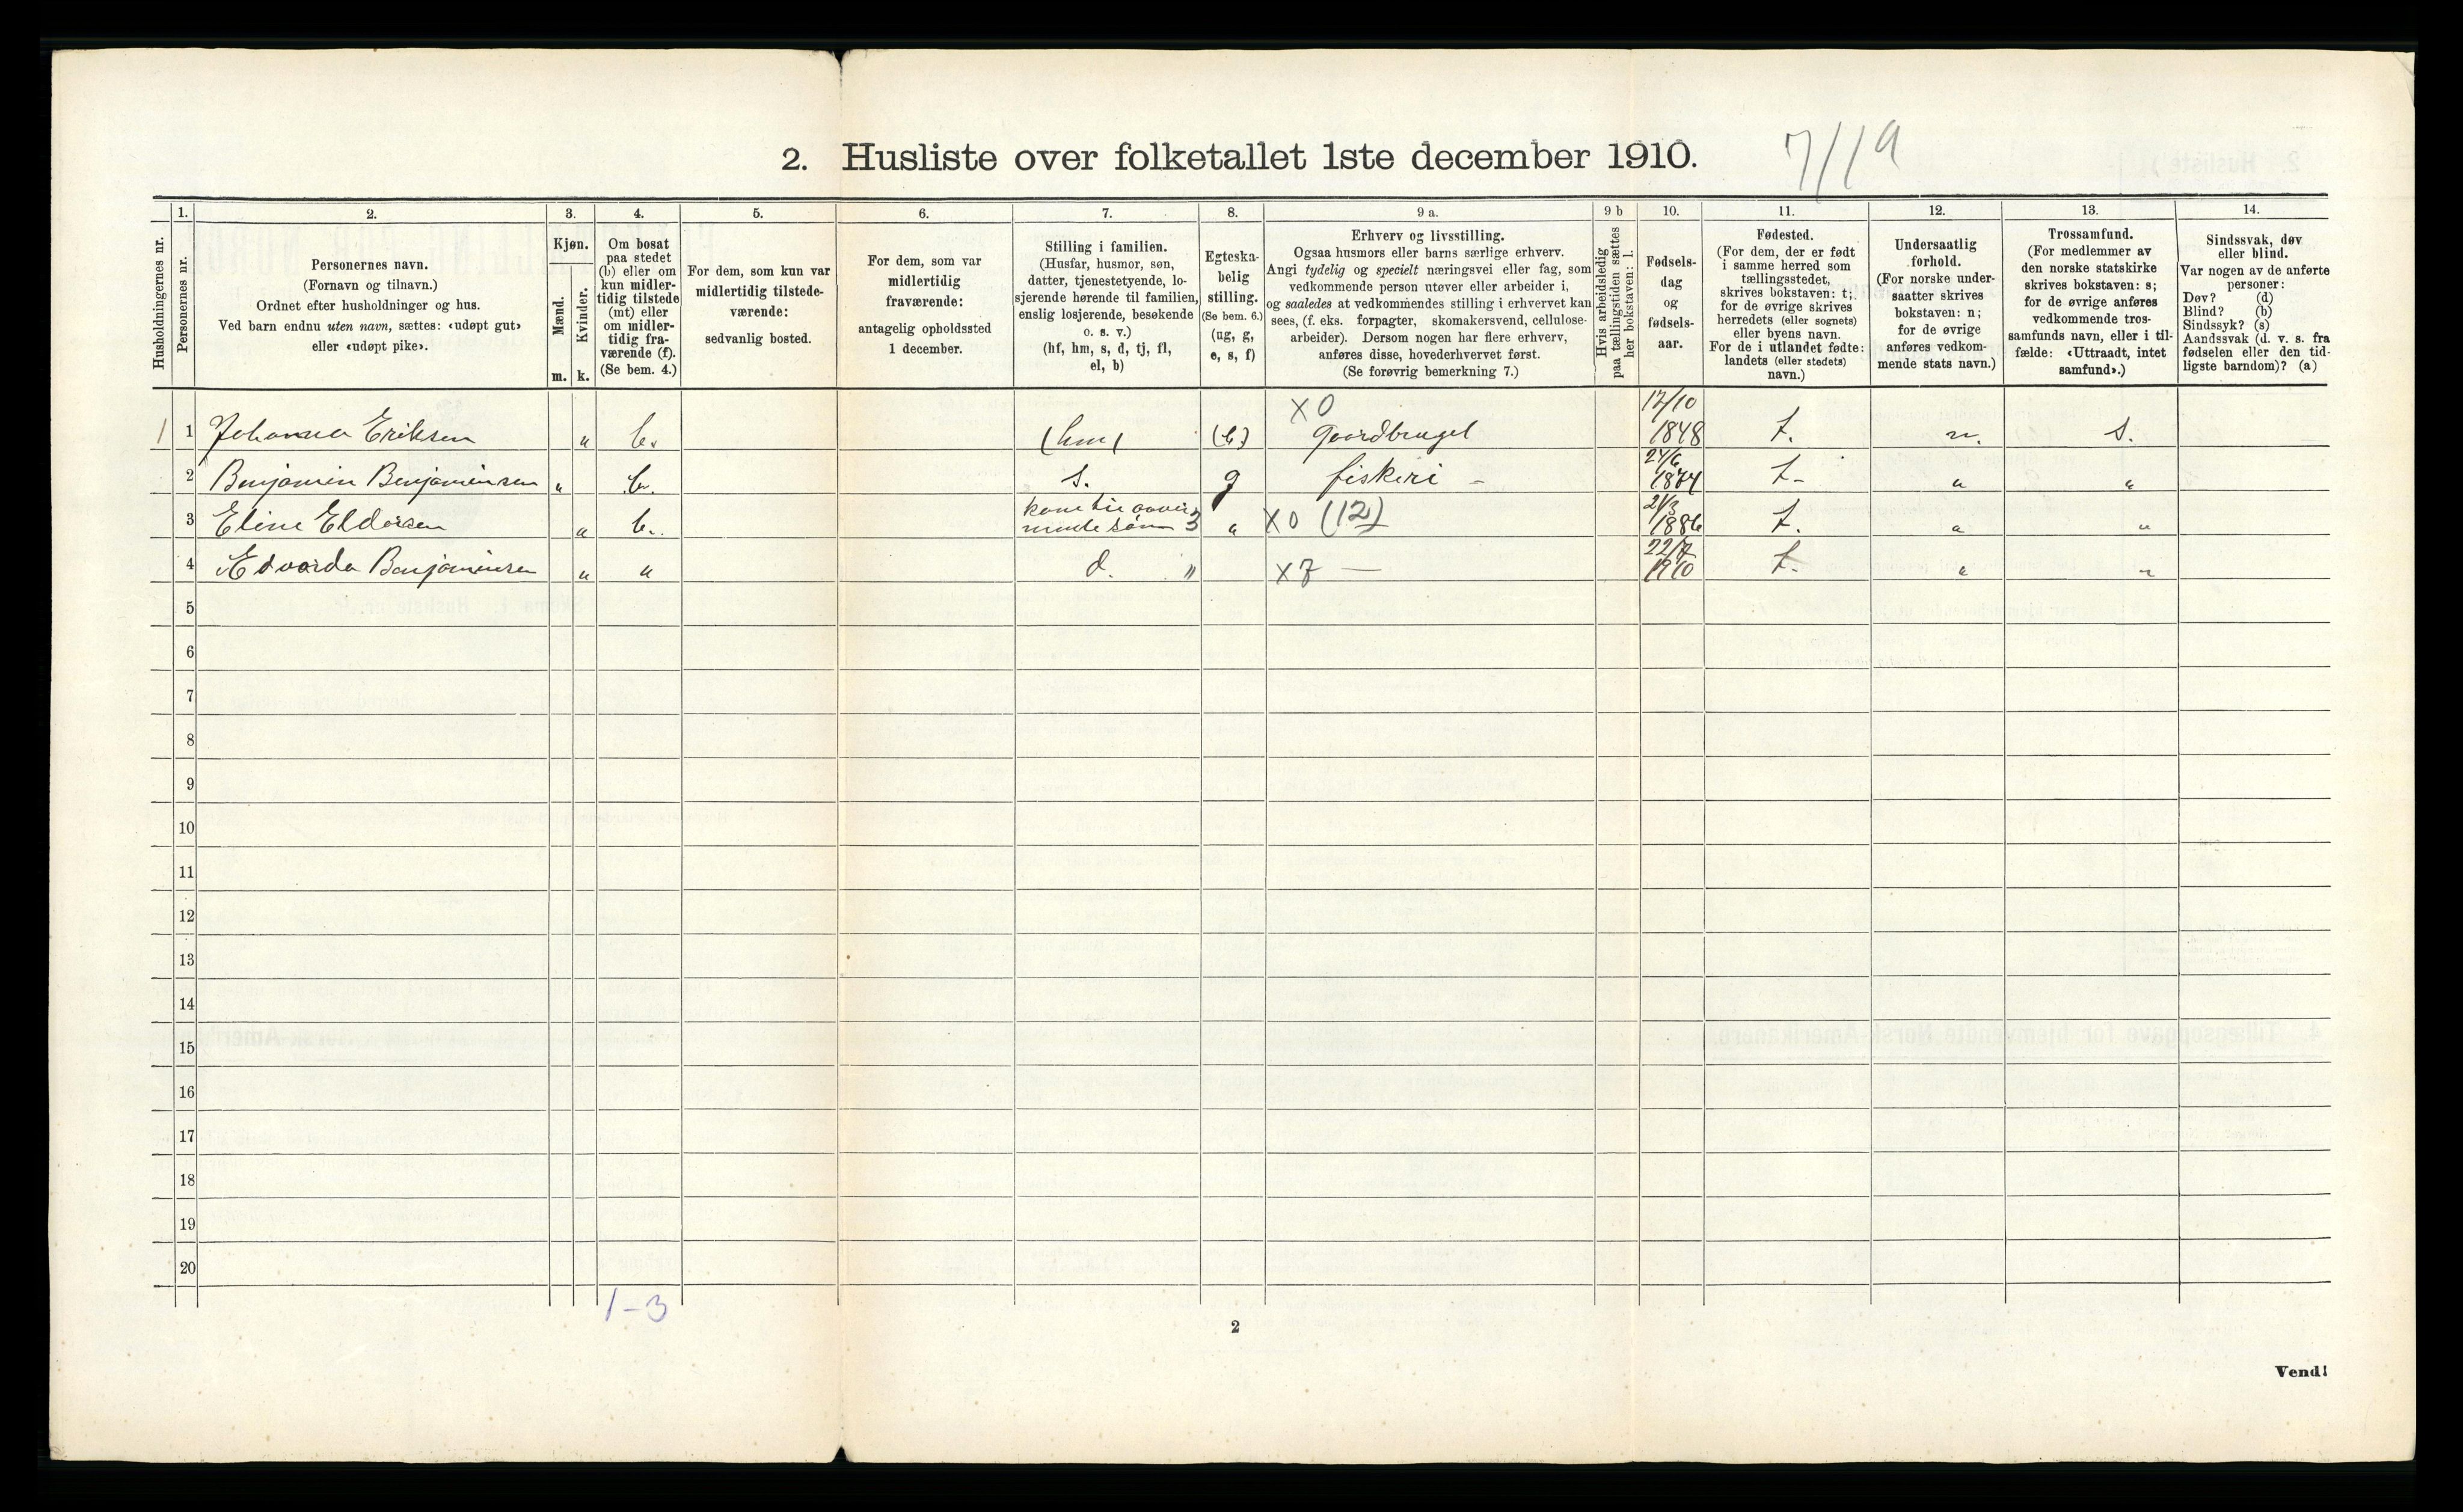 2. Husliste over folketallet 1ste december 1910.
7/19
Husholdningernes nr.
1.
Personernes nr.
2.
Personernes navn.
(Fornavn og tilnavn.)
Ordnet efter husholdninger og hus.
Ved barn endnu uten navn, sættes: «udøpt gut»
eller «udøpt pike».
3.
Kjøn.
Mænd.
Kvinder.
m. k.
4.
Om bosat
paa stedet
(b) eller om
kun midler-
tidig tilstede
(mt) eller
om midler-
tidig fra-
værende (f).
(Se bem. 4.)
5.
For dem, som kun var
midlertidig tilstede-
værende:
sedvanlig bosted.
6.
For dem, som var
midlertidig
fraværende:
antagelig opholdssted
1 december.
7.
Stilling i familien.
(Husfar, husmor, søn,
datter, tjenestetyende, lo-
sjerende hørende til familien,
enslig losjerende, besøkende
o. s. v.)
(hf, hm, s, d, tj, fl,
el, b)
8.
Egteska-
belig
stilling.
(Se bem. 6.)
(ug, g,
e, s, f)
9 a.
Erhverv og livsstilling.
Ogsaa husmors eller barns særlige erhverv.
Angi tydelig og specielt næringsvei eller fag, som
vedkommende person utøver eller arbeider i,
og saaledes at vedkommendes stilling i erhvervet kan
sees, (f. eks. forpagter, skomakersvend, cellulose-
arbeider). Dersom nogen har flere erhverv,
anføres disse, hovederhvervet først.
(Se forøvrig bemerkning 7.)
9 b
Hvis arbeidsledig
paa tællingstiden sættes
her bokstaven: l.
10.
Fødsels-
dag
og
fødsels-
aar.
11.
Fødested.
(For dem, der er født
i samme herred som
tællingsstedet,
skrives bokstaven: t;
for de øvrige skrives
herredets (eller sognets)
eller byens navn.
For de i utlandet fødte:
landets (eller stedets)
navn.)
12.
Undersaatlig
forhold.
(For norske under-
saatter skrives
bokstaven: n;
for de øvrige
anføres vedkom-
mende stats navn.)
13.
Trossamfund.
(For medlemmer av
den norske statskirke
skrives bokstaven: s;
for de øvrige anføres
vedkommende tros-
samfunds navn, eller i til-
fælde: «Uttraadt, intet
samfund».)
14.
Sindssvak, døv
eller blind.
Var nogen av de anførte
personer:
Døv? (d)
Blind? (b)
Sindssyk? (s)
Aandssvak (d. v. s. fra
fødselen eller den tid-
ligste barndom)? (a)
1 1 Johanna Eriksen " b. (hm) X0 Gaardbruget 17/10 1848 t. n. s.
2 Benjamin Benjaminsen " b. s. g fiskeri - 24/6 1874 t- " "
3 Eline " b. kone til " X0 (12) 21/3 1886 t. " "
4 Edvarda Benjaminsen " " d. " X7 — 22/7 1910 t. " "
5
6
7
8
9
10
11
12
13
14
15
16
17
18
19
20
1-3
2
Vend!